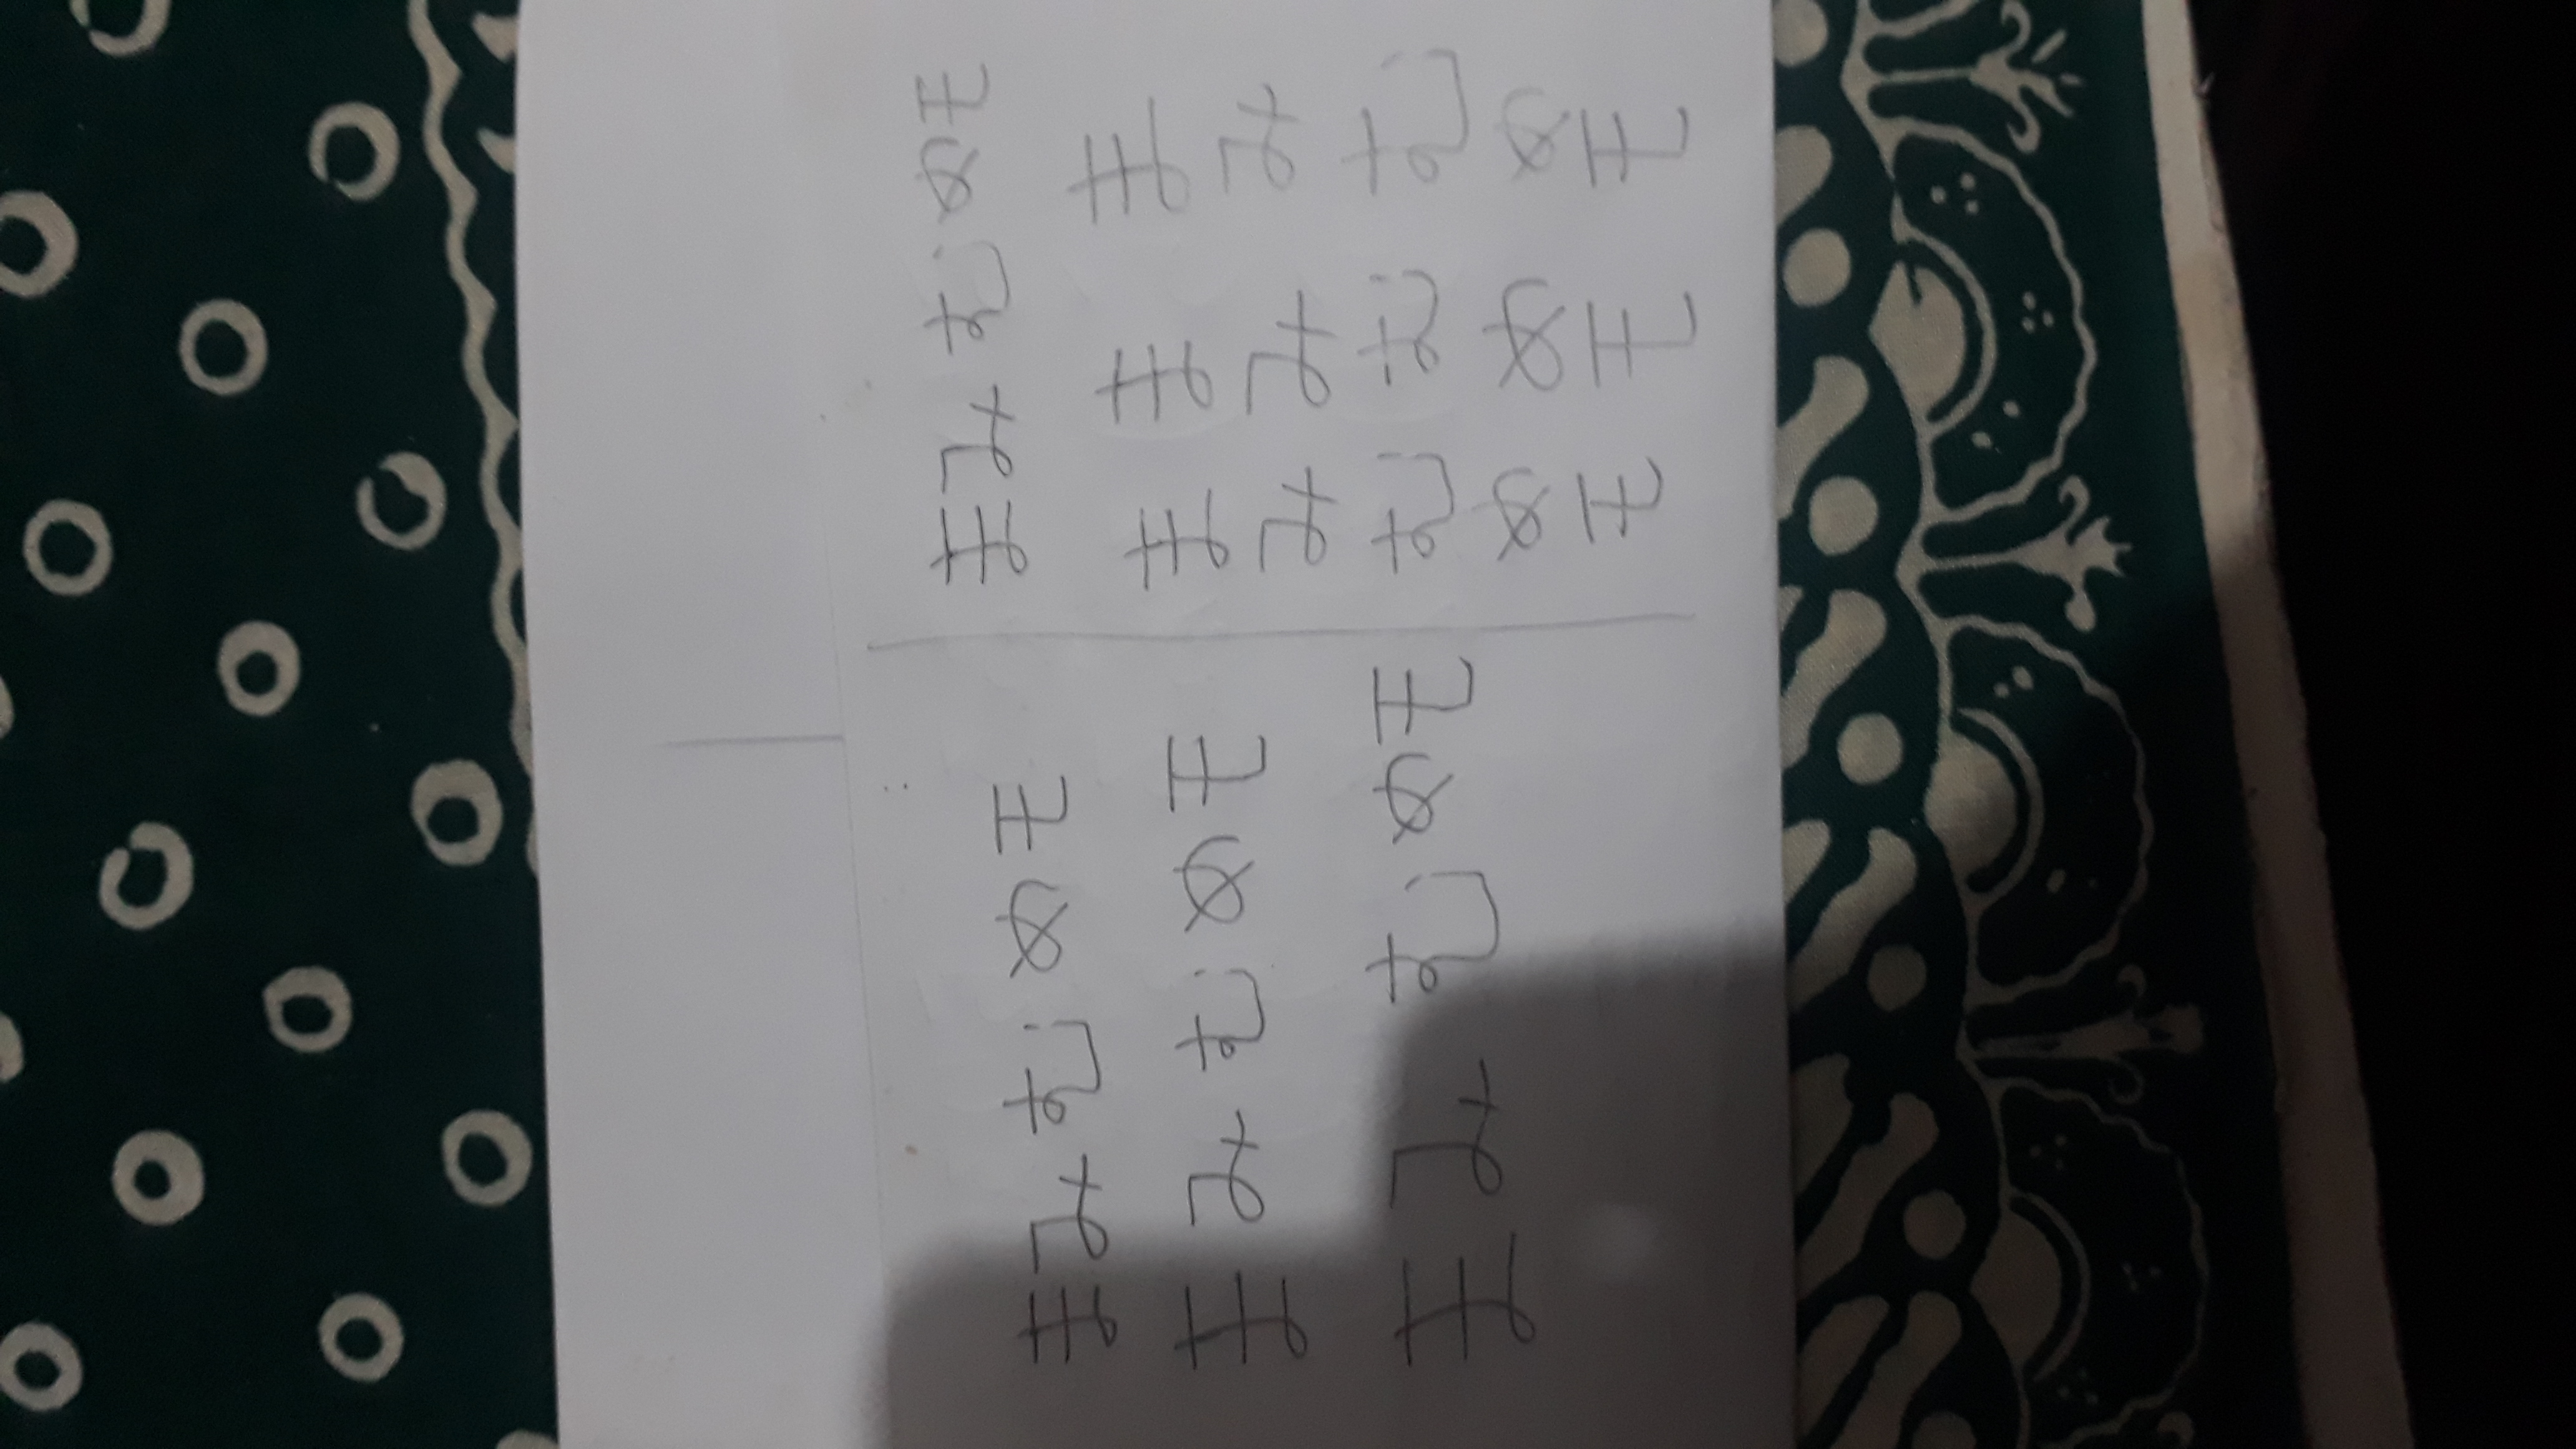 まみむめモ
まみむめモ
まみむめモ
まみむめモ
ま ま ま
み み み
む む む
め め め
モ モ モ